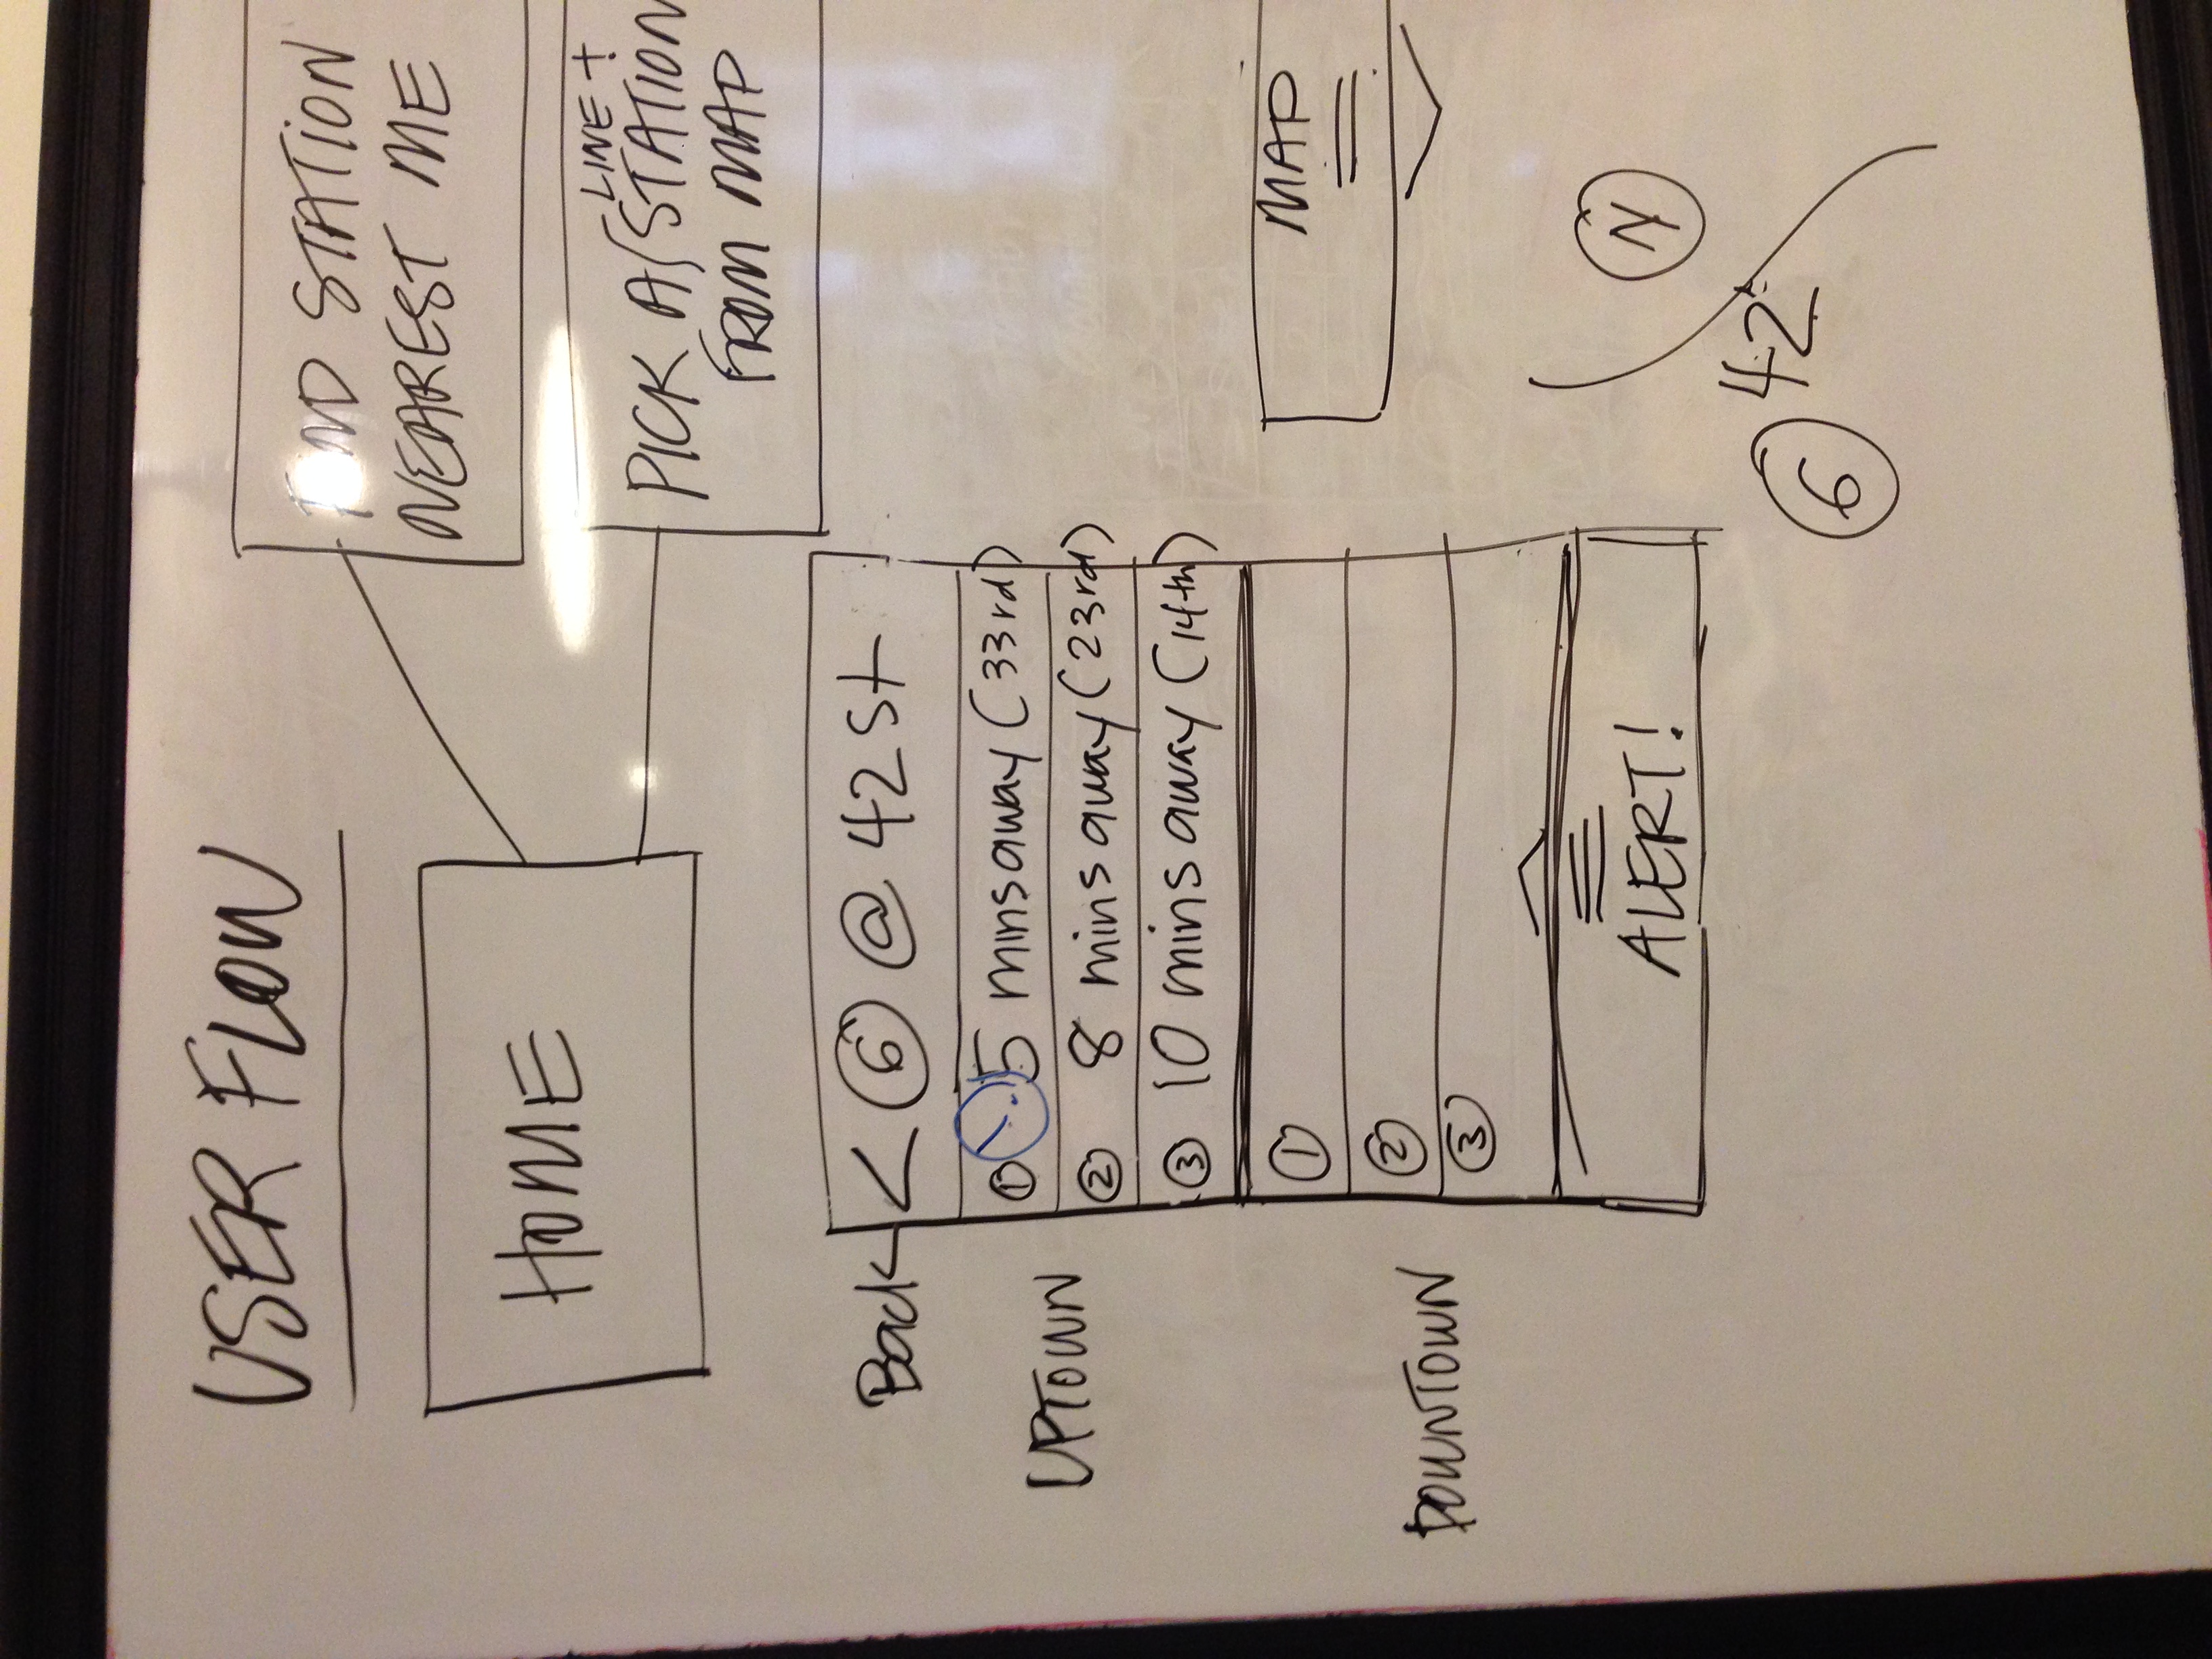 USER FLOW
HOME
FIND STATION
NEAREST ME
LINE +
PICK A STATION
FROM MAP
Back < 6 @ 42 St
UPTOWN
1 ! 5 mins away (33rd)
2 8 mins away (23rd)
3 10 mins away (14th)
DOWNTOWN
1
2
3
ALERT!
MAP
N
42
6